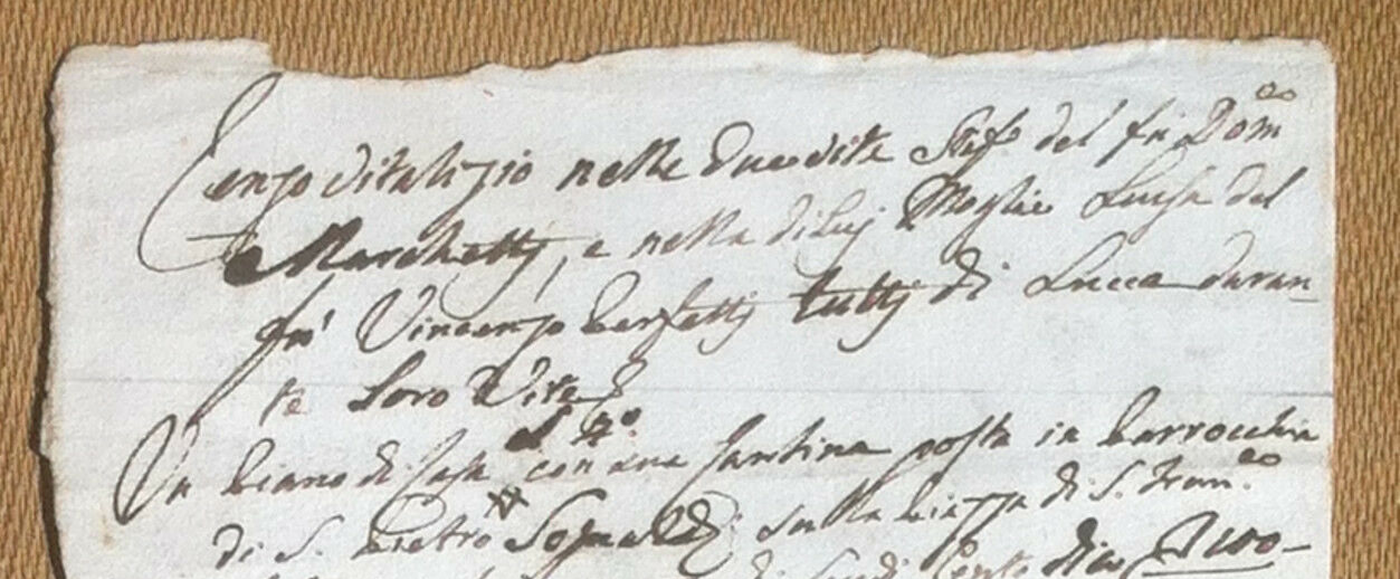 Censo Vitalizio nelle due vite Stef.o del fù Dom.co
Marchettj, e nella di luj Moglie Luisa del
fù Vincenzo Perfettj tuttj di Lucca duran-
te Loro Vite
al n.o
Un Piano di Casa con una Cantina posta in Parrocchia
di S. Pietro Somaldi sulla Piazza di S. Fran.co
di Scudi Cento dico 100-